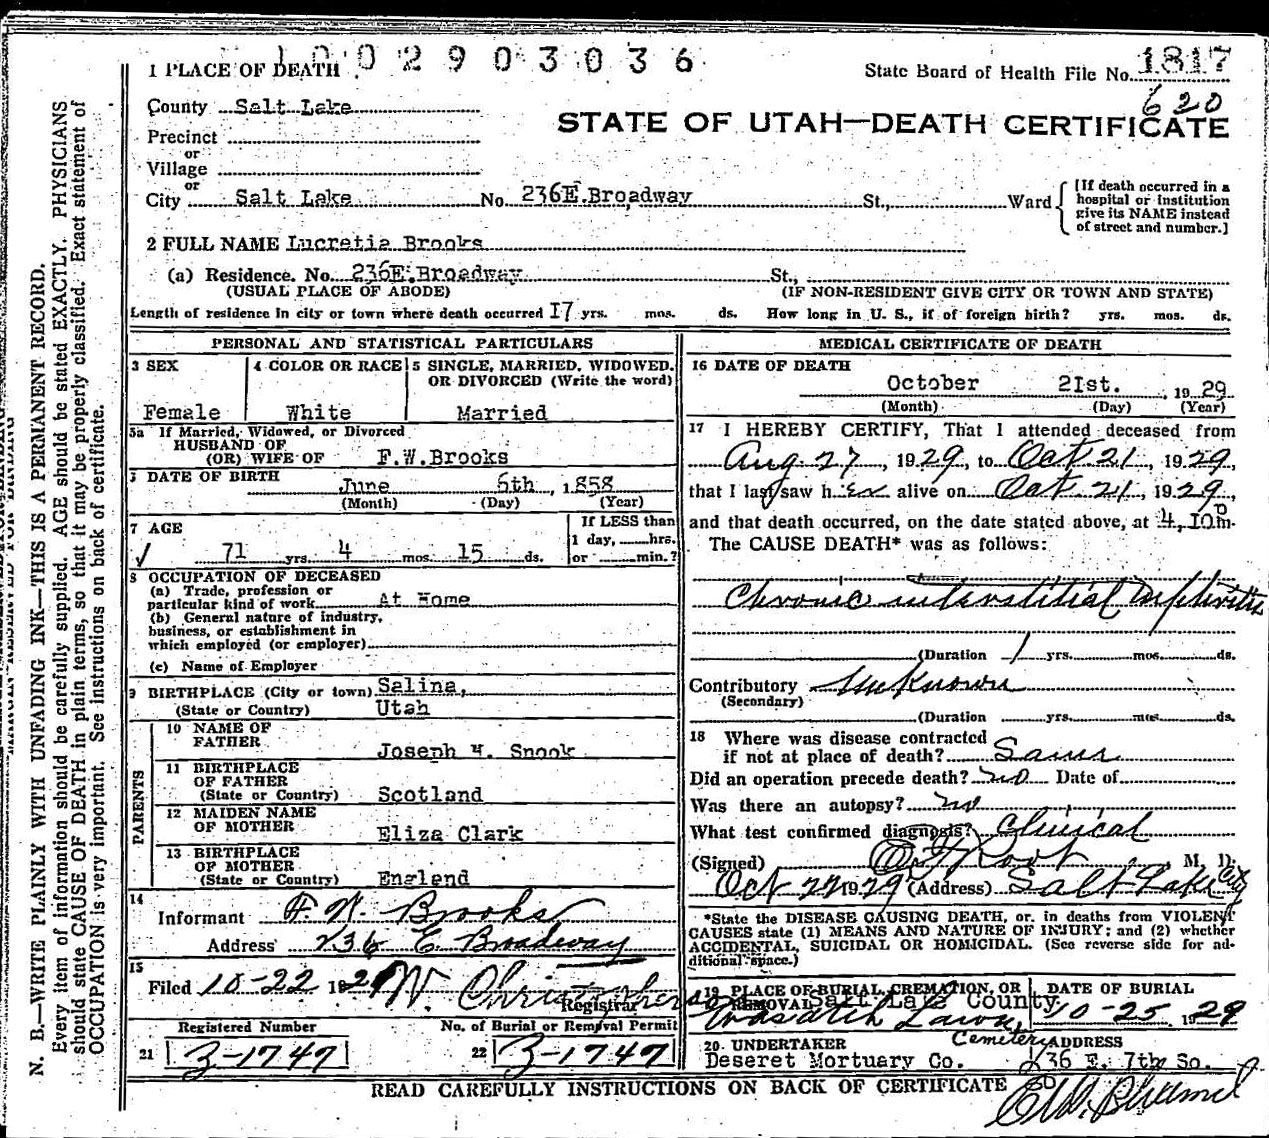 1002903036
1 PLACE OF DEATH
State Board of Health File No. 1817
620
County Salt Lake
STATE OF UTAH—DEATH CERTIFICATE
Precinct
or
Village
or
City Salt Lake No. 236E.Broadway St., Ward
[If death occurred in a
hospital or institution
give its NAME instead
of street and number.]
2 FULL NAME Lucretia Brooks
(a) Residence. No. 236E.Broadway St.,
(USUAL PLACE OF ABODE) (IF NON-RESIDENT GIVE CITY OR TOWN AND STATE)
Length of residence in city or town where death occurred 17 yrs. mos. ds. How long in U. S., if of foreign birth? yrs. mos. ds.
PERSONAL AND STATISTICAL PARTICULARS
3 SEX
Female
4 COLOR OR RACE
White
5 SINGLE, MARRIED, WIDOWED,
OR DIVORCED (Write the word)
Married
5a If Married, Widowed, or Divorced
HUSBAND OF
(OR) WIFE OF F.W.Brooks
DATE OF BIRTH
June 6th, 1858
(Month) (Day) (Year)
7 AGE
71 yrs. 4 mos. 15 ds.
If LESS than
1 day, hrs.
or min.?
8 OCCUPATION OF DECEASED
(a) Trade, profession or
particular kind of work At Home
(b) General nature of industry,
business, or establishment in
which employed (or employer)
(c) Name of Employer
9 BIRTHPLACE (City or town) Salina,
(State or Country) Utah
PARENTS
10 NAME OF
FATHER Joseph H. Snook
11 BIRTHPLACE
OF FATHER
(State or Country) Scotland
12 MAIDEN NAME
OF MOTHER Eliza Clark
13 BIRTHPLACE
OF MOTHER
(State or Country) England
14
Informant F. W. Brooks
Address 236 E Broadway
15
Filed 10-22 1929 W. Christopherson
Registrar
Registered Number No. of Burial or Removal Permit
21 3-1747 22 3-1747
MEDICAL CERTIFICATE OF DEATH
16 DATE OF DEATH
October 21st. , 1929
(Month) (Day) (Year)
17 I HEREBY CERTIFY, That I attended deceased from
Aug 27, 1929, to Oct 21, 1929,
that I last saw her alive on Oct 21, 1929,
and that death occurred, on the date stated above, at 4,10Pm.
The CAUSE DEATH* was as follows:
Chronic interstitial nephritis
(Duration 1 yrs. mos. ds.
Contributory Unknown
(Secondary)
(Duration yrs. mos. ds.
18 Where was disease contracted
if not at place of death? Same
Did an operation precede death? no Date of
Was there an autopsy? no
What test confirmed diagnosis? Clinical
(Signed) Root, M. D.
Oct 22 1929 (Address) Salt Lake City
*State the DISEASE CAUSING DEATH, or, in deaths from VIOLENT
CAUSES state (1) MEANS AND NATURE OF INJURY; and (2) whether
ACCIDENTAL, SUICIDAL OR HOMICIDAL. (See reverse side for ad-
ditional space.)
19 PLACE OF BURIAL, CREMATION, OR
REMOVAL Salt Lake County
Wasatch Lawn
Cemetery
DATE OF BURIAL
10-25, 1929
20 UNDERTAKER ADDRESS
Deseret Mortuary Co. 36 E. 7th So.
READ CAREFULLY INSTRUCTIONS ON BACK OF CERTIFICATE
N. B.—WRITE PLAINLY WITH UNFADING INK—THIS IS A PERMANENT RECORD.
Every item of information should be carefully supplied. AGE should be stated EXACTLY. PHYSICIANS
should state CAUSE OF DEATH in plain terms, so that it may be properly classified. Exact statement of
OCCUPATION is very important. See instructions on back of certificate.